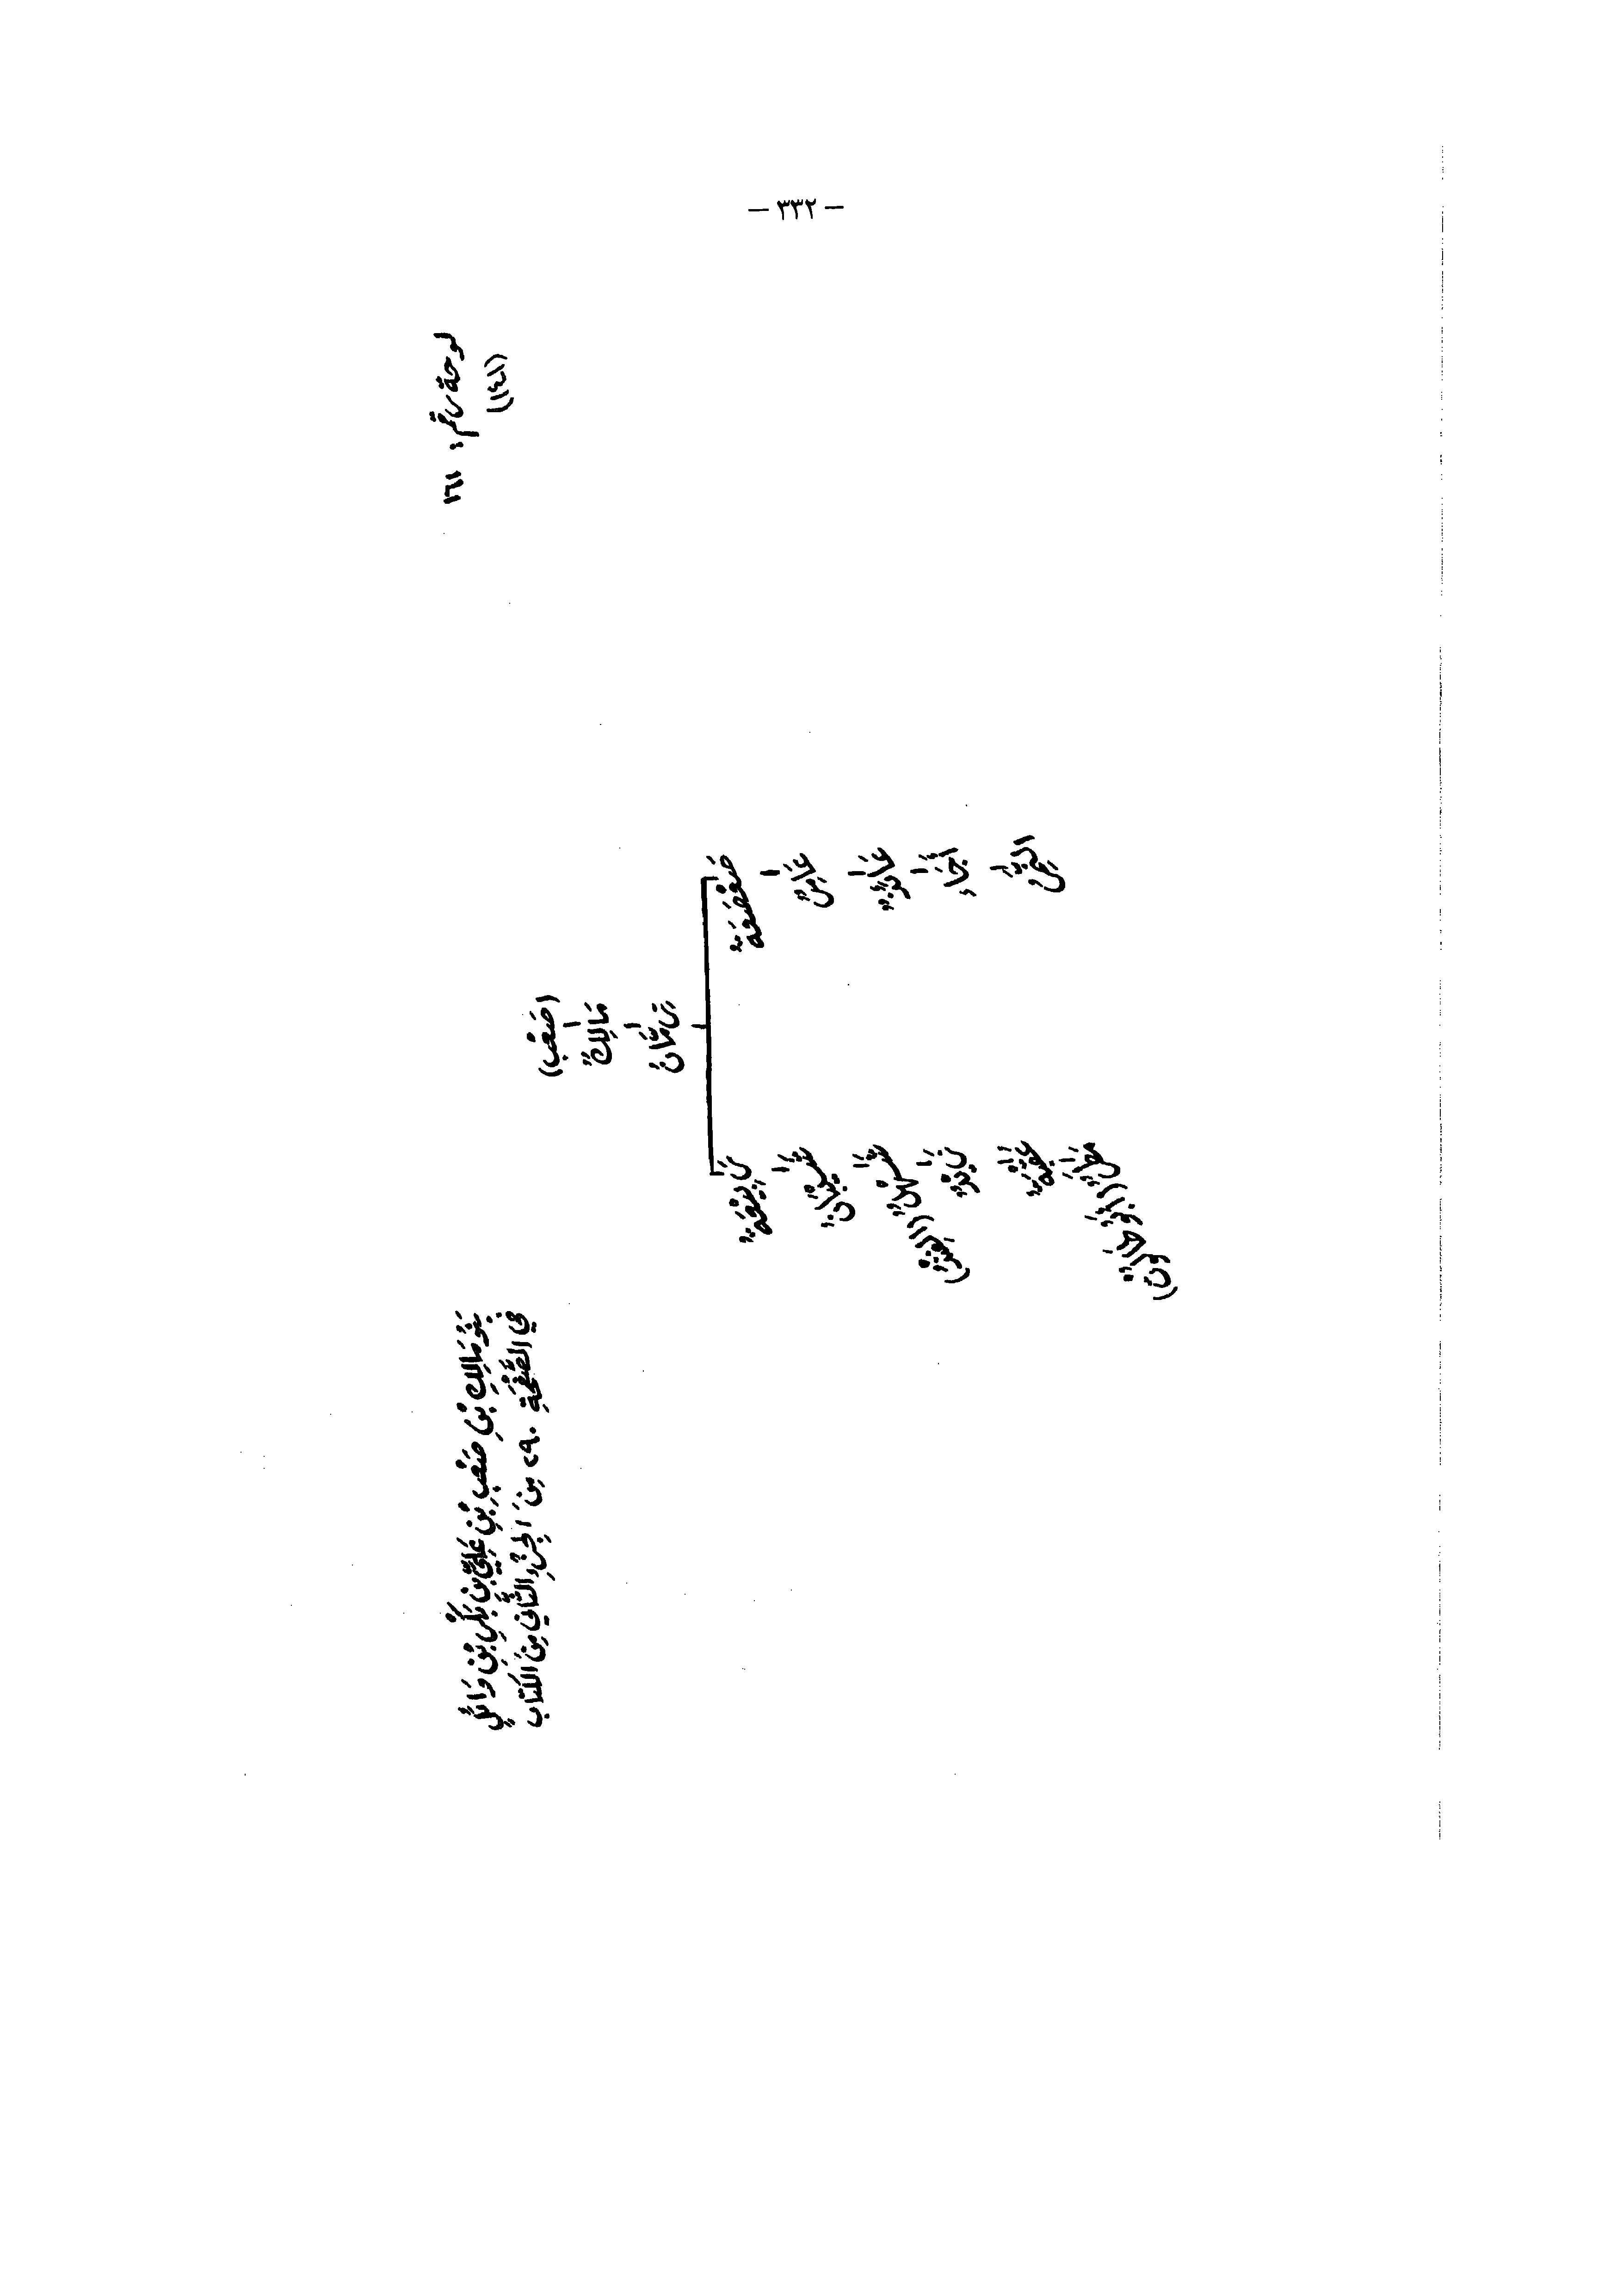 - ٣٣٢ -
لوحة رقم: ١٦١
(١٤١)
بَنُو مَالِكِ بْنِ صَعْبِ بْنِ عَلِيِّ بْنِ بَكْرِ بْنِ وَائِلٍ
في الصَّفْحَةِ ٢٩٠ مِنَ الجُزْءِ الثَّانِي مِنَ الكِتَابِ
(صَعْب)
مَالِكٌ
زِمَّانُ
صَعْصَعَةُ رَبِيْعَةُ
عَامِرٌ شَيْبَانُ
شَهْلٌ (الفِنْدُ)
زَيْدٌ
عُقْبَةُ
مَطَرٌ (أَبُو طَالُوْتَ)